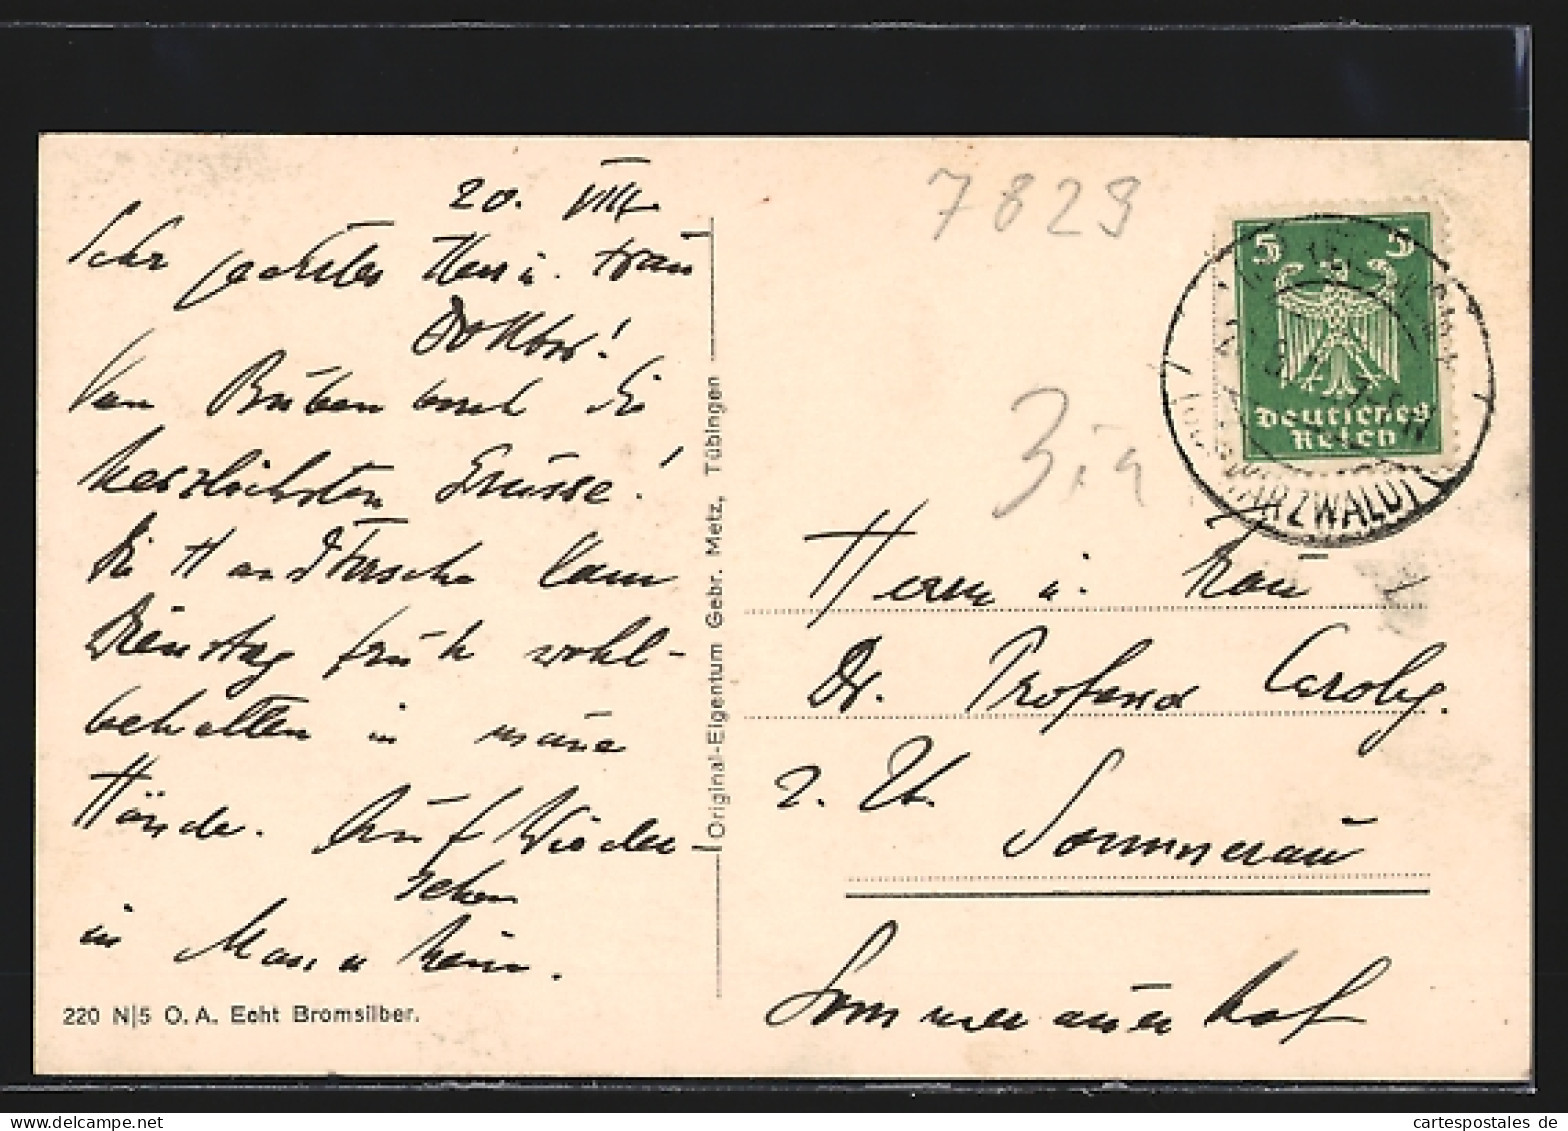 20. VIII.
Sehr geehrter Herr u. Frau
Doktor!
Von Buben auch die
herzlichsten Grüsse!
Die Handtasche kam
Dienstag früh wohl-
behalten in meine
Hände. Auf Wieder-
sehen
in Mannheim.
220 N|5 O. A. Echt Bromsilber.
Original-Eigentum Gebr. Metz, Tübingen
7829
5 5
Deutsches
Reich
SCHWARZWALD
Herrn u. Frau
Dr. Professor
z. Zt.
Sommerau
Sommerauerhof
cartespostales de